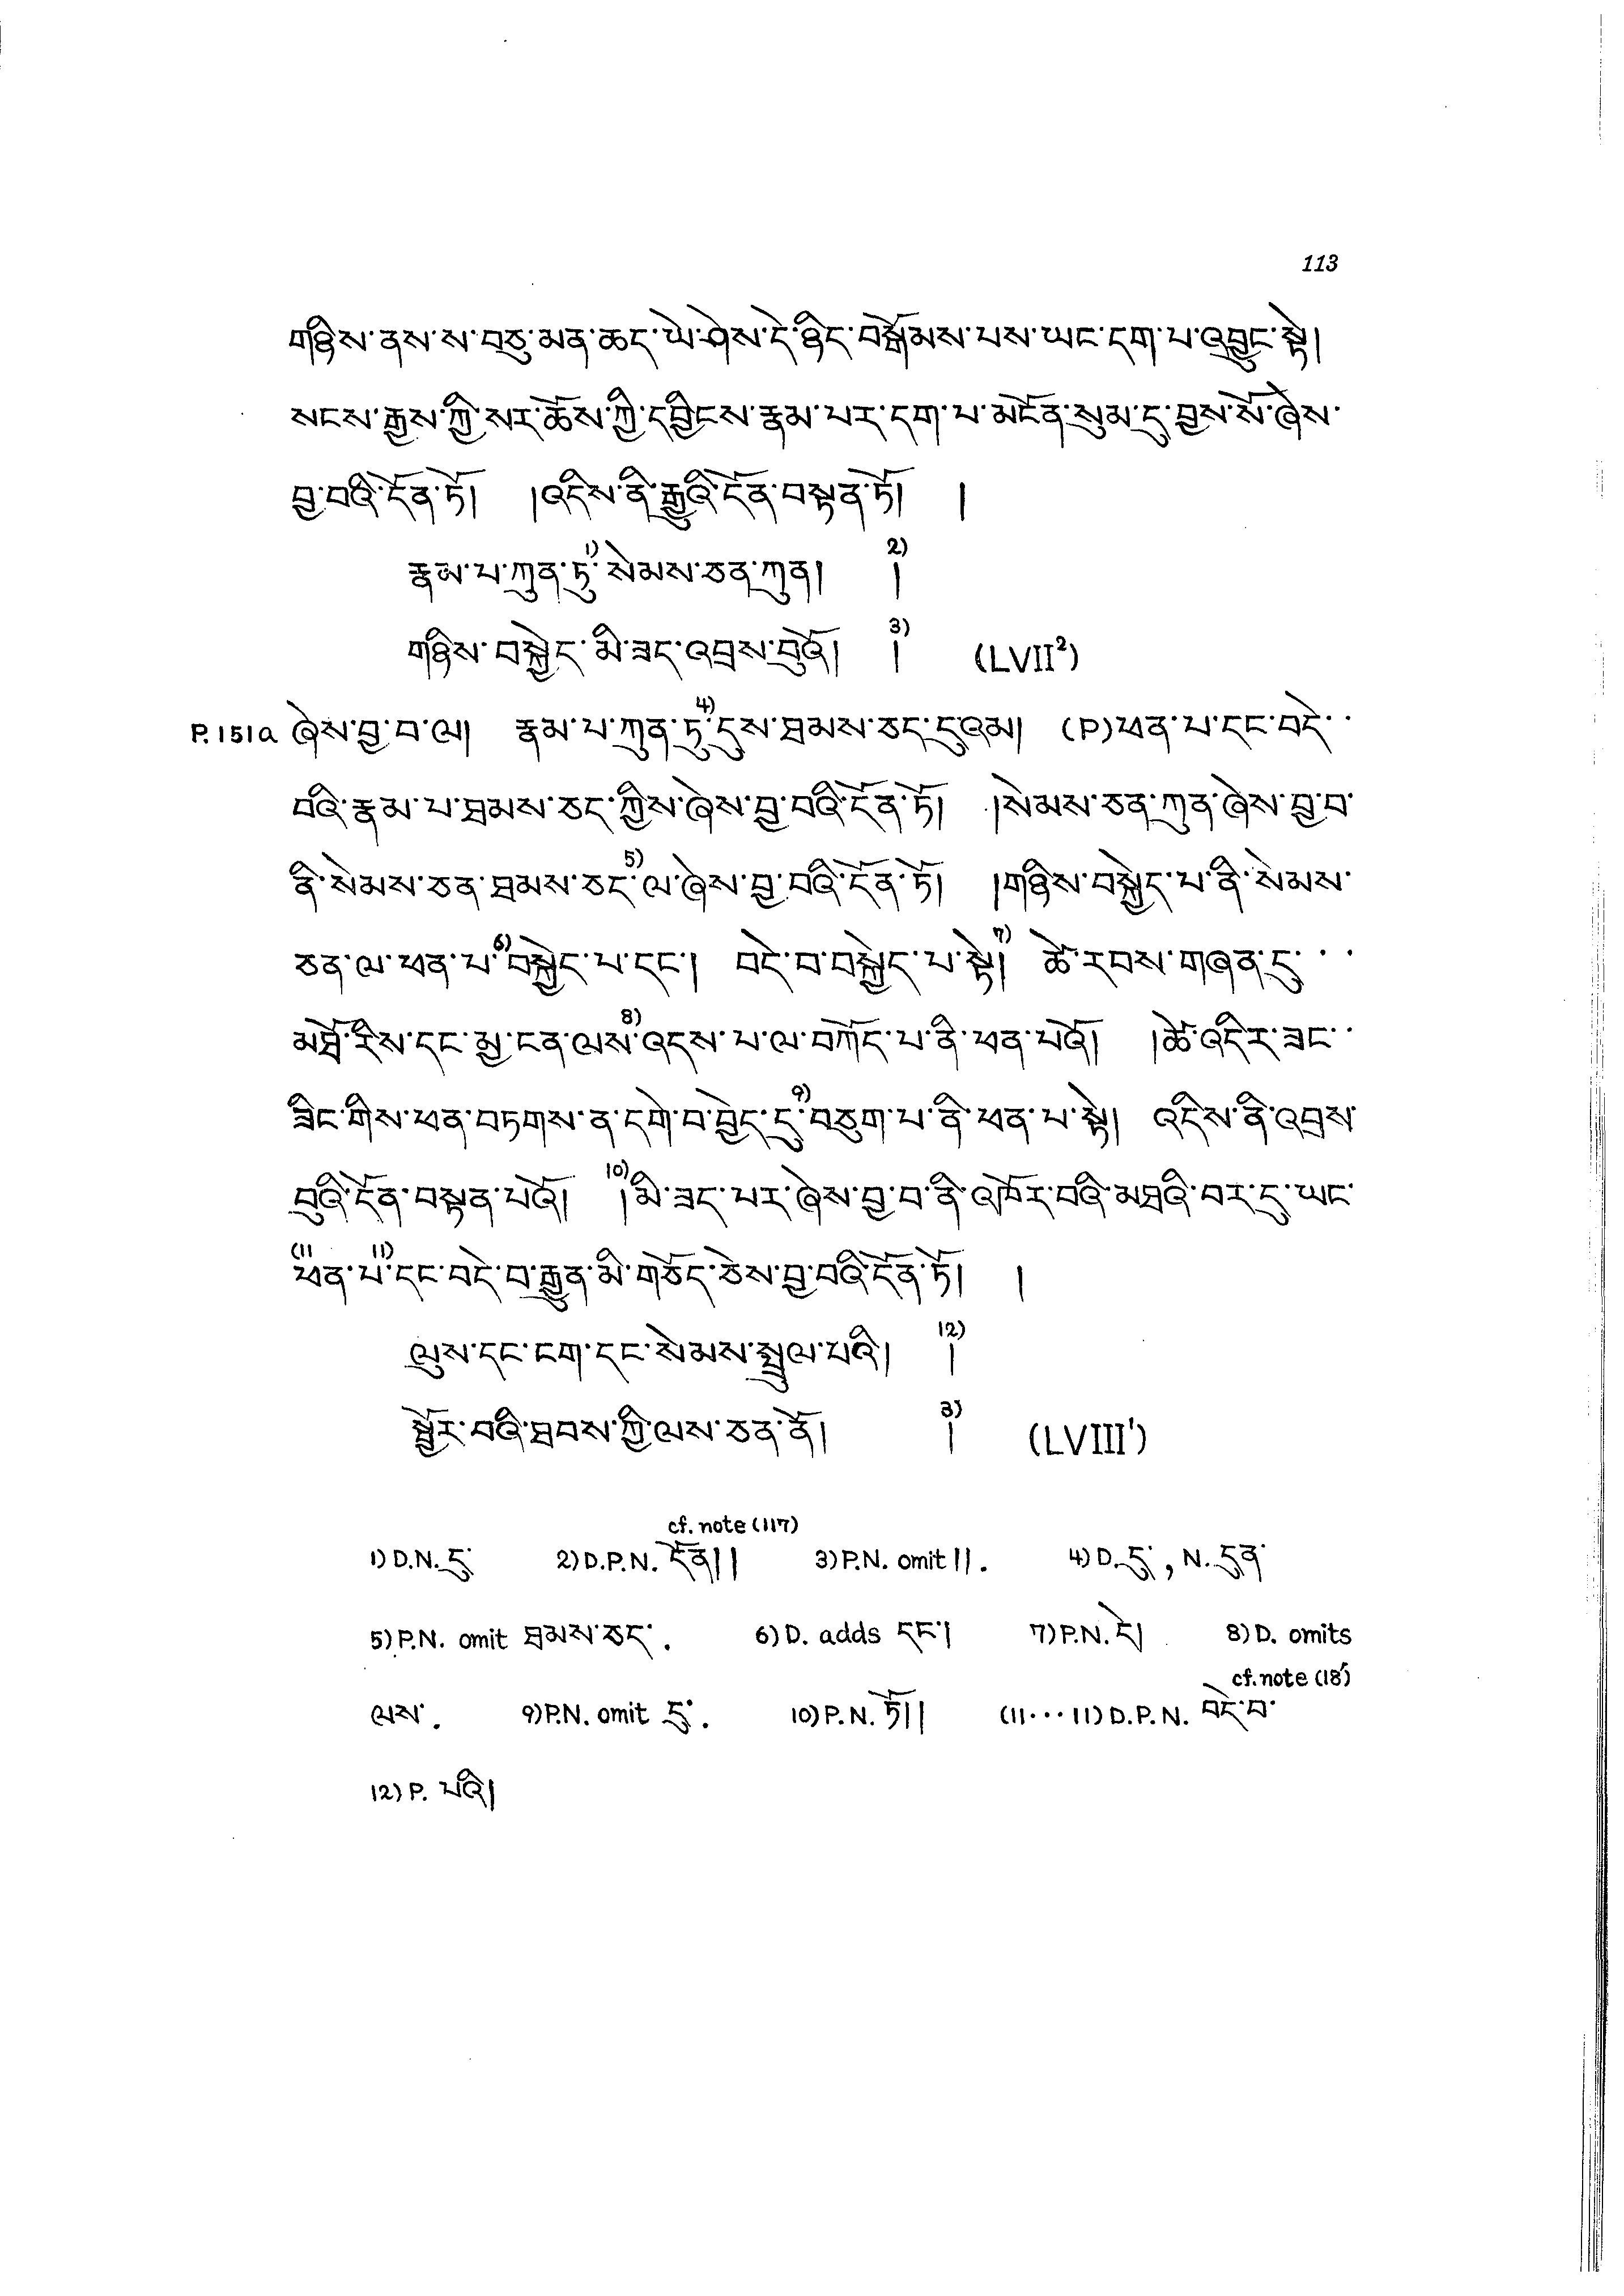 113
གཉིས་ནས་ས་བཅུ་མན་ཆད་ཡེ་ཤེས་དེ་ཉིད་བསྒོམས་པས་ཡང་དག་པ་འབྱུང་སྟེ།
སངས་རྒྱས་ཀྱི་སར་ཆོས་ཀྱི་དབྱིངས་རྣམ་པར་དག་པ་མངོན་སུམ་དུ་བྱས་སོ་ཞེས་
བྱ་བའི་དོན་ཏོ། །འདིས་ནི་རྒྱུའི་དོན་བསྟན་ཏོ། །
རྣམ་པ་ཀུན་ཏུ་1) སེམས་ཅན་ཀུན། །2)
གཉིས་བསྐྱེད་མི་ཟད་འབྲས་བུའོ། །3) (LVII²)
P.151a ཞེས་བྱ་བ་ལ། རྣམ་པ་ཀུན་ཏུ་4)དུས་ཐམས་ཅད་དུའམ། (P)ཕན་པ་དང་བདེ་··
བའི་རྣམ་པ་ཐམས་ཅད་ཀྱིས་ཞེས་བྱ་བའི་དོན་ཏོ། །སེམས་ཅན་ཀུན་ཞེས་བྱ་བ་
ནི་སེམས་ཅན་ཐམས་ཅད་5)ལ་ཞེས་བྱ་བའི་དོན་ཏོ། །གཉིས་བསྐྱེད་པ་ནི་སེམས་
ཅན་ལ་ཕན་པ་6)བསྐྱེད་པ་དང་། བདེ་བ་བསྐྱེད་པ་སྟེ།7) ཚེ་རབས་གཞན་དུ་···
མཐོ་རིས་དང་མྱ་ངན་ལས་8)འདས་པ་ལ་བཀོད་པ་ནི་ཕན་པའོ། །ཚེ་འདིར་ཟང་··
ཟིང་གིས་ཕན་བཏགས་ན་དགེ་བ་བྱེད་དུ་9)བཅུག་པ་ནི་ཕན་པ་སྟེ། འདིས་ནི་འབྲས་
བུའི་དོན་བསྟན་པའོ། 10)།མི་ཟད་པར་ཞེས་བྱ་བ་ནི་འཁོར་བའི་མཐའི་བར་དུ་ཡང་
(11ཕན་པ་11)དང་བདེ་བ་རྒྱུན་མི་གཅོད་ཅེས་བྱ་བའི་དོན་ཏོ། །
ལུས་དང་ངག་དང་སེམས་སྤྲུལ་པའི། །12)
སྦྱོར་བའི་ཐབས་ཀྱི་ལས་ཅན་ནོ། །3) (LVIII¹)
cf. note (117)
1) D.N. དུ་ 2) D.P.N. དོན།། 3) P.N. omit །།. 4) D. དུ་, N. དུན་
5) P.N. omit ཐམས་ཅད་. 6) D. adds དང་། 7) P.N. དེ། 8) D. omits
cf. note (18)
ལས་. 9) P.N. omit དུ་. 10) P.N. ཏོ།། (11···11) D.P.N. བདེ་བ་
12) P. པའི།